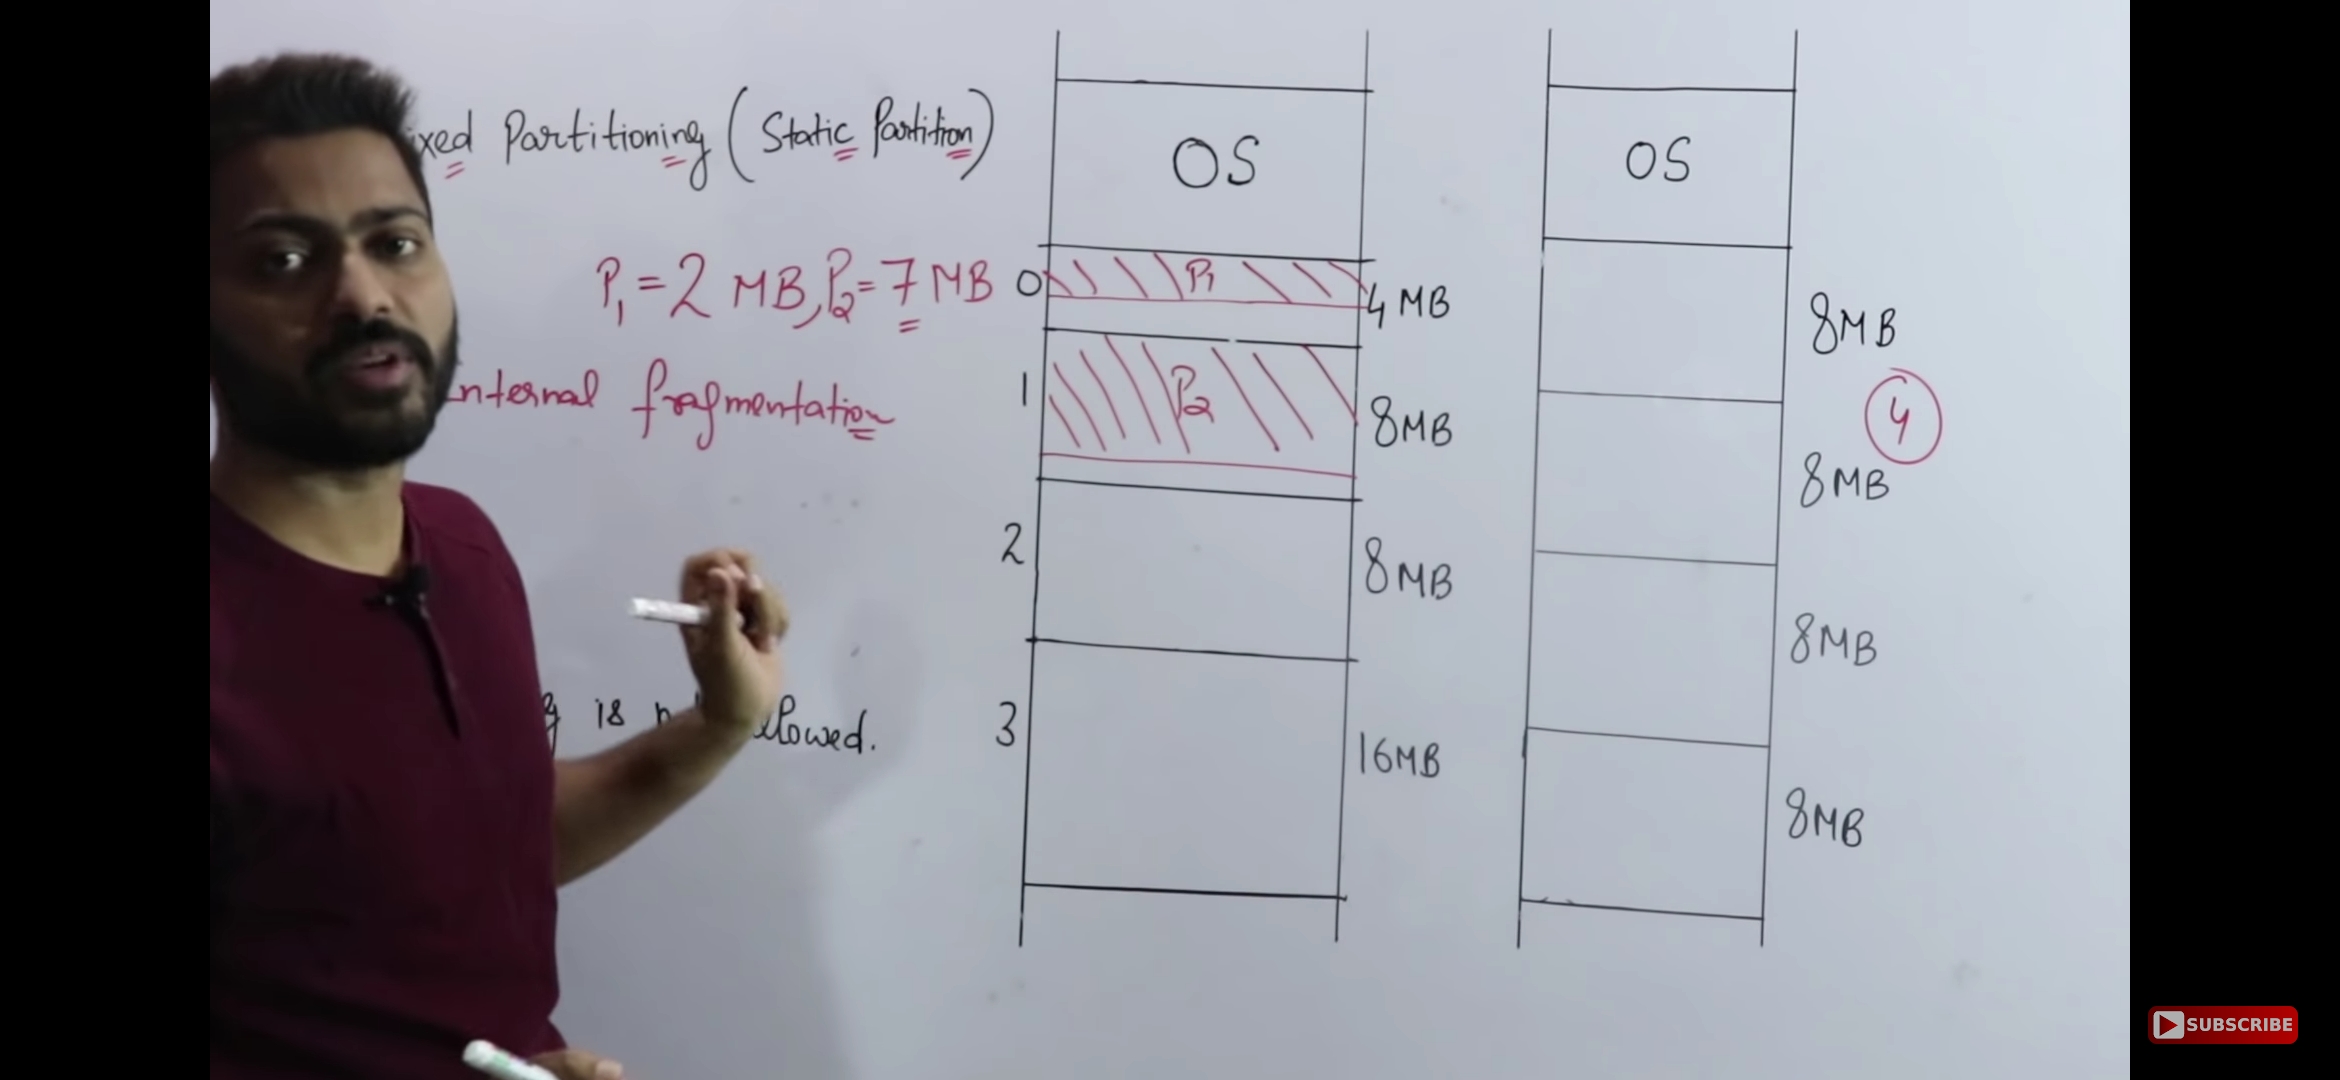 ixed Partitioning (Static Partition)
P1 = 2 MB, P2 = 7 MB
nternal fragmentation
is allowed.
OS
0 P1 4 MB
1 P2 8MB
2 8MB
3 16MB
OS
8MB
4
8MB
8MB
8MB
SUBSCRIBE